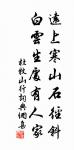 遠上寒山石徑斜
白雲生處有人家
杜牧山行詞典網書